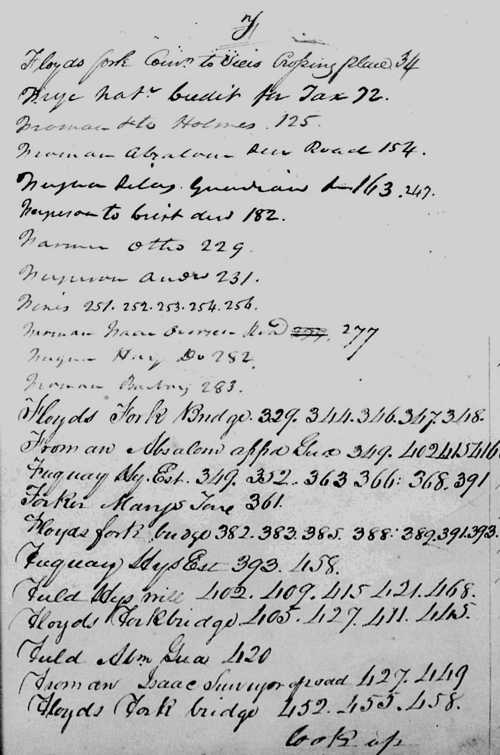 F
Floyds fork Com.rs to View Crossing place 34
Frye Nat.l Credit for Tax 72.
Froman & to Holmes. 125.
Froman Absalom Surv Road 154.
Fuqua Silas Guardian 163. 247.
Ferguson to Crist deed 182.
Farmer Otho 229.
Ferguson Andw 231.
Fines 251. 252. 253. 254. 256.
Froman Isaac Overseer Road 277
Fuqua Hary Do 282
Froman 283.
Floyds Fork Bridge. 329. 344. 346. 347. 348.
Froman Absalom appd Gua 349. 402 415 416
Fuquay Hy. Est. 349. 352. 363 366: 368. 391
Forker Marys Tave 361.
Floyds fork bridge 382. 383. 385. 388: 389. 391. 393.
Fuquay Hys Est 393. 458.
Field Hys mill 402. 409. 415 421. 468.
Floyds Forkbridge 405. 427. 411. 445.
Field Abm Gua 420
Froman Isaac Surveyor of road 427. 449
Floyds Fork bridge 452. 455. 458.
look up